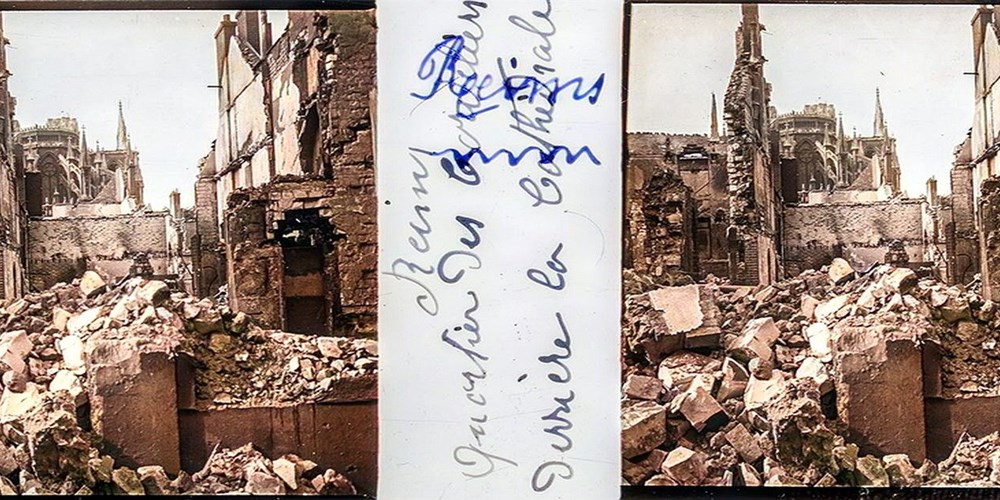 Reims
Reims
Quartier Des
Derrière la Cathédrale